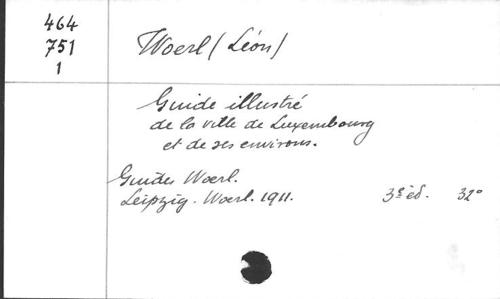 464
751
1
Woerl (Léon)
Guide illustré
de la ville de Luxembourg
et de ses environs.
Guides Woerl.
Leipzig. Woerl. 1911. 3e éd. 32°